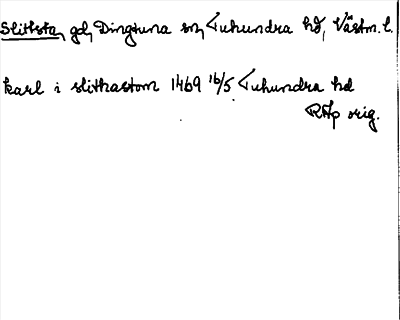 Slithsta, gd, Dingtuna sn, Tuhundra hd, Västm. l.
karl i slithastom 1469 16/5 Tuhundra hd
RAp orig.